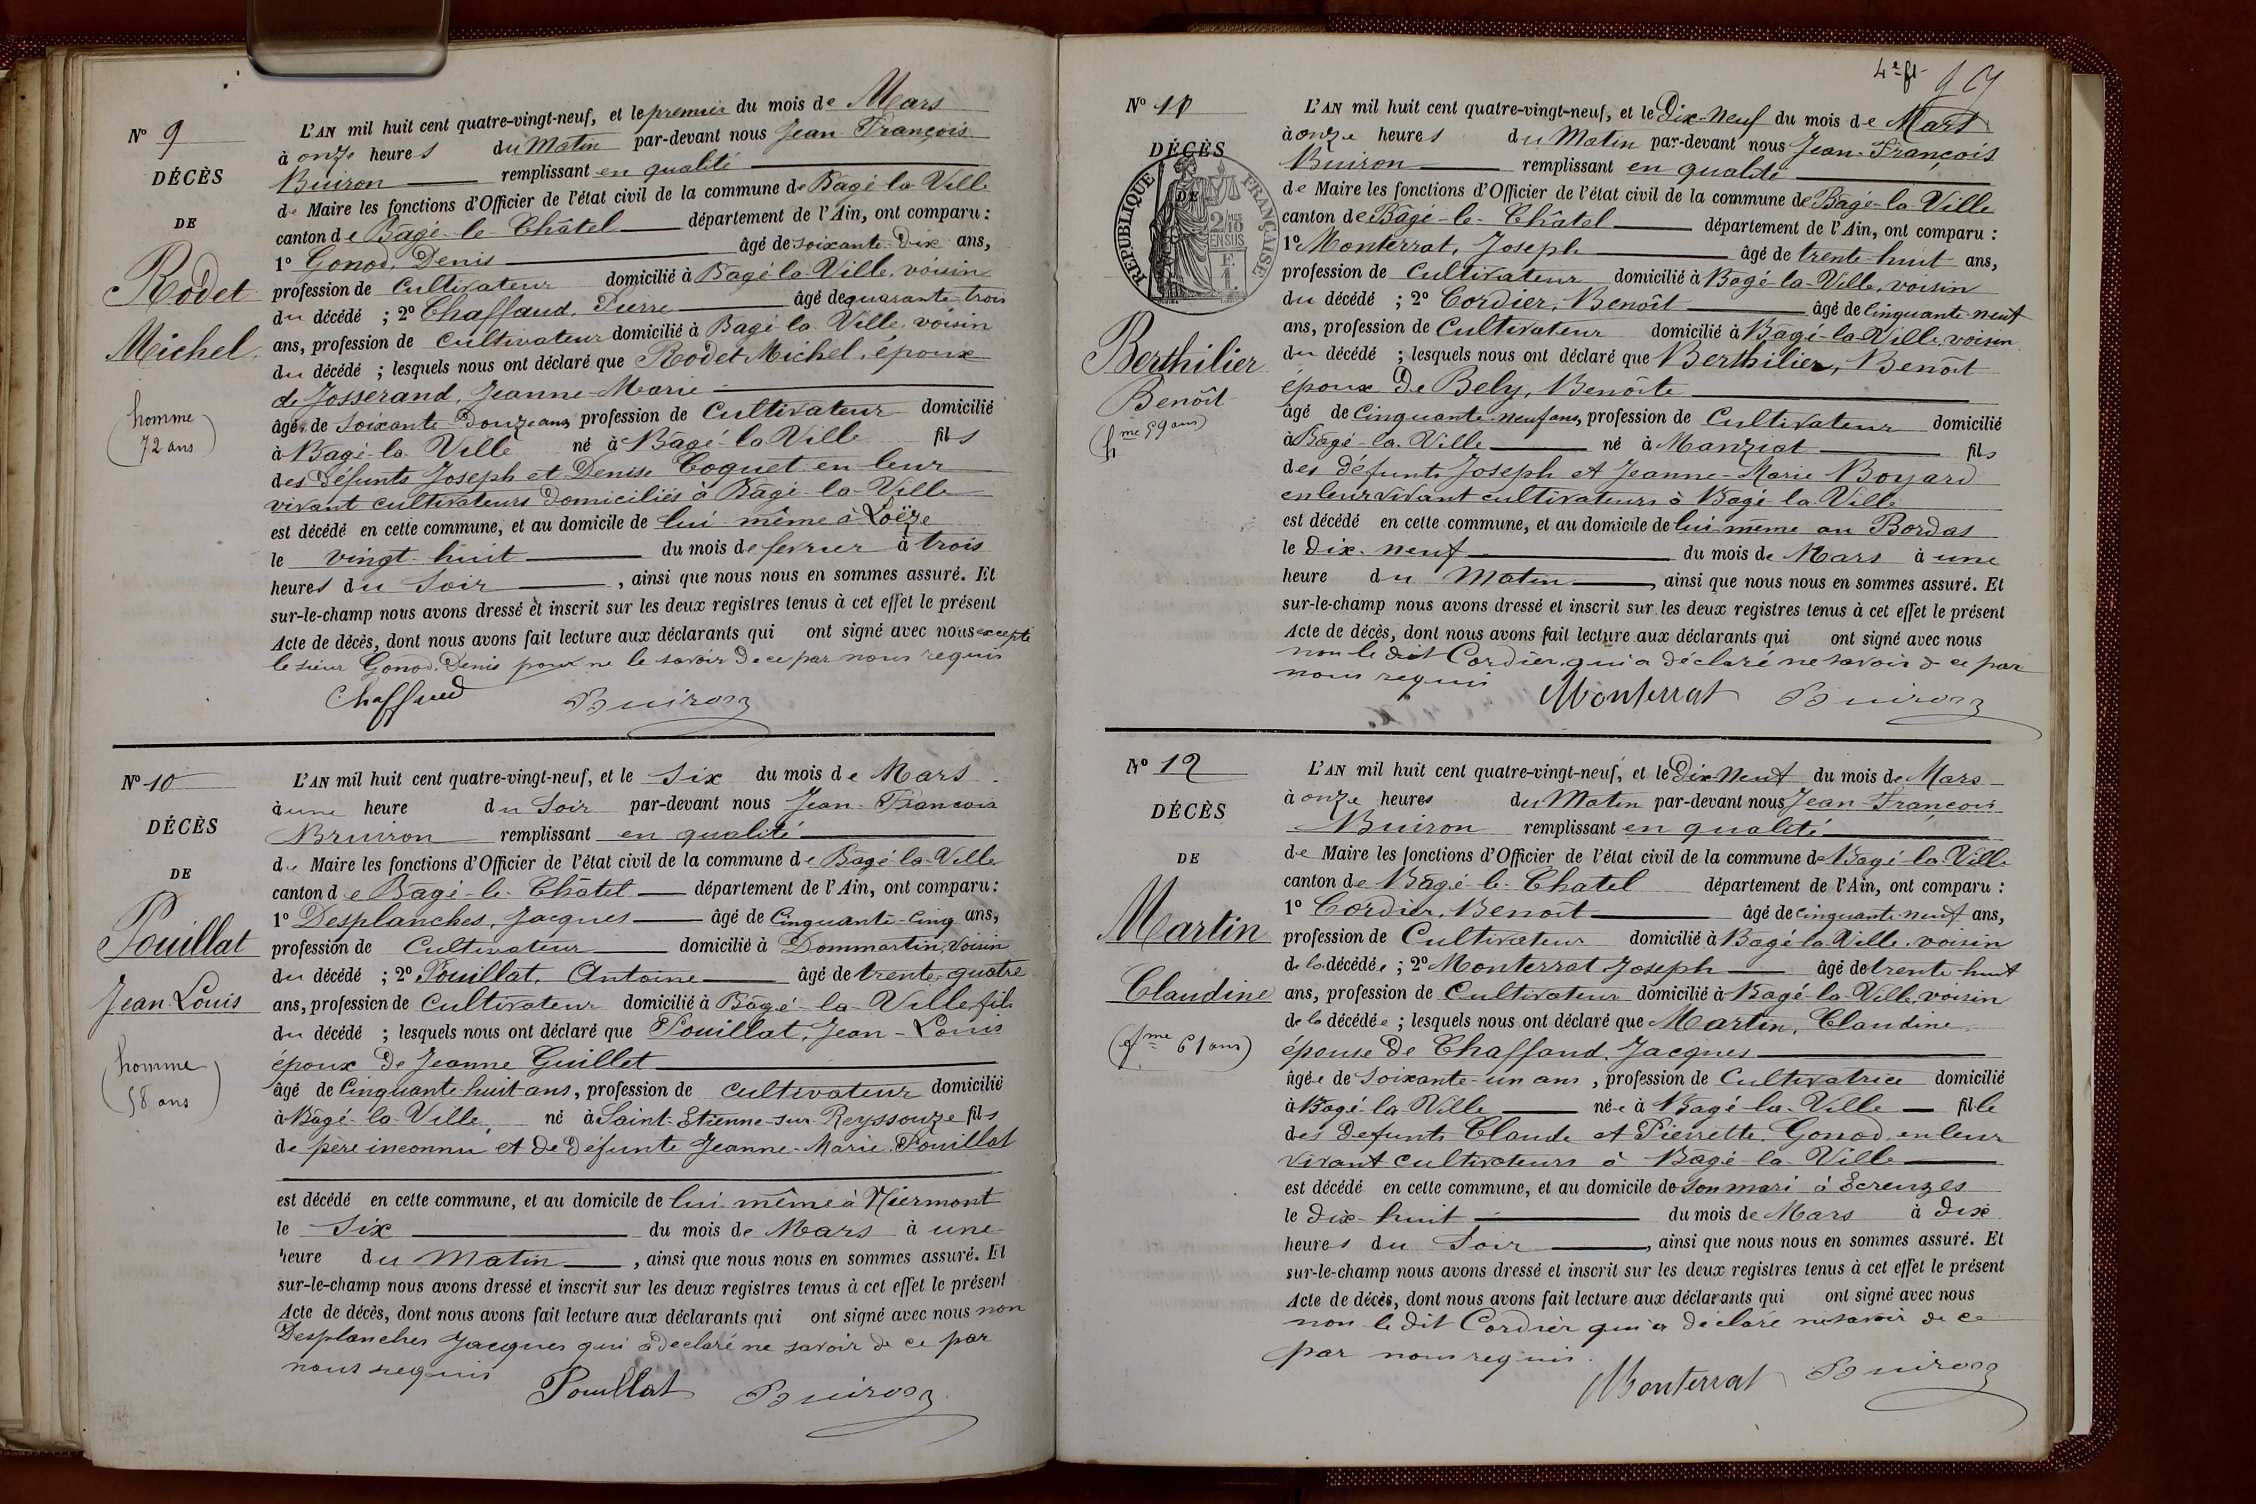 N° 9
DÉCÈS
DE
Rodet
Michel
homme
72 ans
L'AN mil huit cent quatre-vingt-neuf, et le premier du mois de Mars
à onze heures du Matin par-devant nous Jean François
Buiron remplissant en qualité
de Maire les fonctions d'Officier de l'état civil de la commune de Bâgé-la-Ville
canton de Bâgé-le-Châtel département de l'Ain, ont comparu :
1° Gonod, Denis âgé de soixante-Dix ans,
profession de cultivateur domicilié à Bagé-la-Ville, voisin
du décédé ; 2° Chaffaud, Pierre âgé de quarante-trois
ans, profession de cultivateur domicilié à Bagé-la-Ville, voisin
du décédé ; lesquels nous ont déclaré que Rodet Michel, époux
de Josserand, Jeanne-Marie
âgé de soixante-Douze ans, profession de Cultivateur domicilié
à Bagé-la-Ville né à Bagé-la-Ville fils
des défunts Joseph et Denise Coquet en leur
vivant cultivateurs domiciliés à Bâgé-la-Ville
est décédé en cette commune, et au domicile de lui même à Loëze
le vingt-huit du mois de fevrier à trois
heures du Soir , ainsi que nous nous en sommes assuré. Et
sur-le-champ nous avons dressé et inscrit sur les deux registres tenus à cet effet le présent
Acte de décès, dont nous avons fait lecture aux déclarants qui ont signé avec nous excepté
le sieur Gonod Denis pour ne le savoir de ce par nous requis
Chaffaud Buiron
N° 10
DÉCÈS
DE
Pouillat
Jean-Louis
homme
58 ans
L'AN mil huit cent quatre-vingt-neuf, et le six du mois de Mars
à une heure du Soir par-devant nous Jean-François
Bruiron remplissant en qualité
de Maire les fonctions d'Officier de l'état civil de la commune de Bâgé-la-Ville
canton de Bâgé-le-Châtel département de l'Ain, ont comparu :
1° Desplanches, Jacques âgé de Cinquante-Cinq ans,
profession de Cultivateur domicilié à Dommartin, voisin
du décédé ; 2° Pouillat, Antoine âgé de trente-quatre
ans, profession de Cultivateur domicilié à Bâgé-la-Ville fils
du décédé ; lesquels nous ont déclaré que Pouillat, Jean-Louis
époux De Jeanne Guillet
âgé de Cinquante huit ans, profession de cultivateur domicilié
à Bâgé-la-Ville, né à Saint-Etienne-sur-Reyssouze fils
de père inconnu et de Défunte Jeanne-Marie Pouillat
est décédé en cette commune, et au domicile de lui même à Niermont
le Six du mois de Mars à une
heure du Matin , ainsi que nous nous en sommes assuré. Et
sur-le-champ nous avons dressé et inscrit sur les deux registres tenus à cet effet le présent
Acte de décès, dont nous avons fait lecture aux déclarants qui ont signé avec nous non
Desplanches Jacques qui a declaré ne savoir de ce par
nous requis
Pouillat Buiron
4e ft
N° 11
DÉCÈS
DE
RÉPUBLIQUE FRANÇAISE
2/10
EN SUS
F.
1.
Berthilier
Benoît
hme 59 ans
L'AN mil huit cent quatre-vingt-neuf, et le Dix-Neuf du mois de Mars
à onze heures du Matin par-devant nous Jean-François
Buiron remplissant en qualité
de Maire les fonctions d'Officier de l'état civil de la commune de Bagé-la-Ville
canton de Bâgé-le-Châtel département de l'Ain, ont comparu :
1° Monterrat, Joseph âgé de trente-huit ans,
profession de Cultivateur domicilié à Bagé-la-Ville, voisin
du décédé ; 2° Cordier, Benoît âgé de Cinquante-neuf
ans, profession de Cultivateur domicilié à Bagé-la-Ville, voisin
du décédé ; lesquels nous ont déclaré que Berthilier, Benoît
époux De Bely, Benoîte
âgé de Cinquante-neuf ans, profession de Cultivateur domicilié
à Bâgé-la-Ville né à Manziat fils
des défunts Joseph et Jeanne-Marie Boyard
en leur vivant cultivateurs à Bagé la Ville
est décédé en cette commune, et au domicile de lui même au Bordas
le Dix-neuf du mois de Mars à une
heure du Matin , ainsi que nous nous en sommes assuré. Et
sur-le-champ nous avons dressé et inscrit sur les deux registres tenus à cet effet le présent
Acte de décès, dont nous avons fait lecture aux déclarants qui ont signé avec nous
non le dit Cordier qui a déclaré ne savoir de ce par
nous requis
Monterrat Buiron
N° 12
DÉCÈS
DE
Martin
Claudine
fme 61 ans
L'AN mil huit cent quatre-vingt-neuf, et le Dix Neuf du mois de Mars
à onze heures du Matin par-devant nous Jean-François
Buiron remplissant en qualité
de Maire les fonctions d'Officier de l'état civil de la commune de Bagé-la-Ville
canton de Bâgé-le-Chatel département de l'Ain, ont comparu :
1° Cordier, Benoît âgé de cinquante-neuf ans,
profession de Cultivateur domicilié à Bagé-la-Ville, voisin
de la décédée ; 2° Monterrat Joseph âgé de trente-huit
ans, profession de Cultivateur domicilié à Bagé-la-Ville, voisin
de la décédée ; lesquels nous ont déclaré que Martin, Claudine
épouse De Chaffaud, Jacques
âgée de Soixante-un ans , profession de Cultivatrice domicilié
à Bagé-la Ville née à Bagé-la-Ville fille
des Defunts Claude et Pierrette Gonod en leur
vivant cultivateurs à Bagé-la-Ville
est décédé en cette commune, et au domicile de son mari à Ecreuzes
le Dix-huit du mois de Mars à Dix
heures du Soir , ainsi que nous nous en sommes assuré. Et
sur-le-champ nous avons dressé et inscrit sur les deux registres tenus à cet effet le présent
Acte de décès, dont nous avons fait lecture aux déclarants qui ont signé avec nous
non le dit Cordier qui a déclaré ne savoir de ce
par nous requis.
Monterrat Buiron